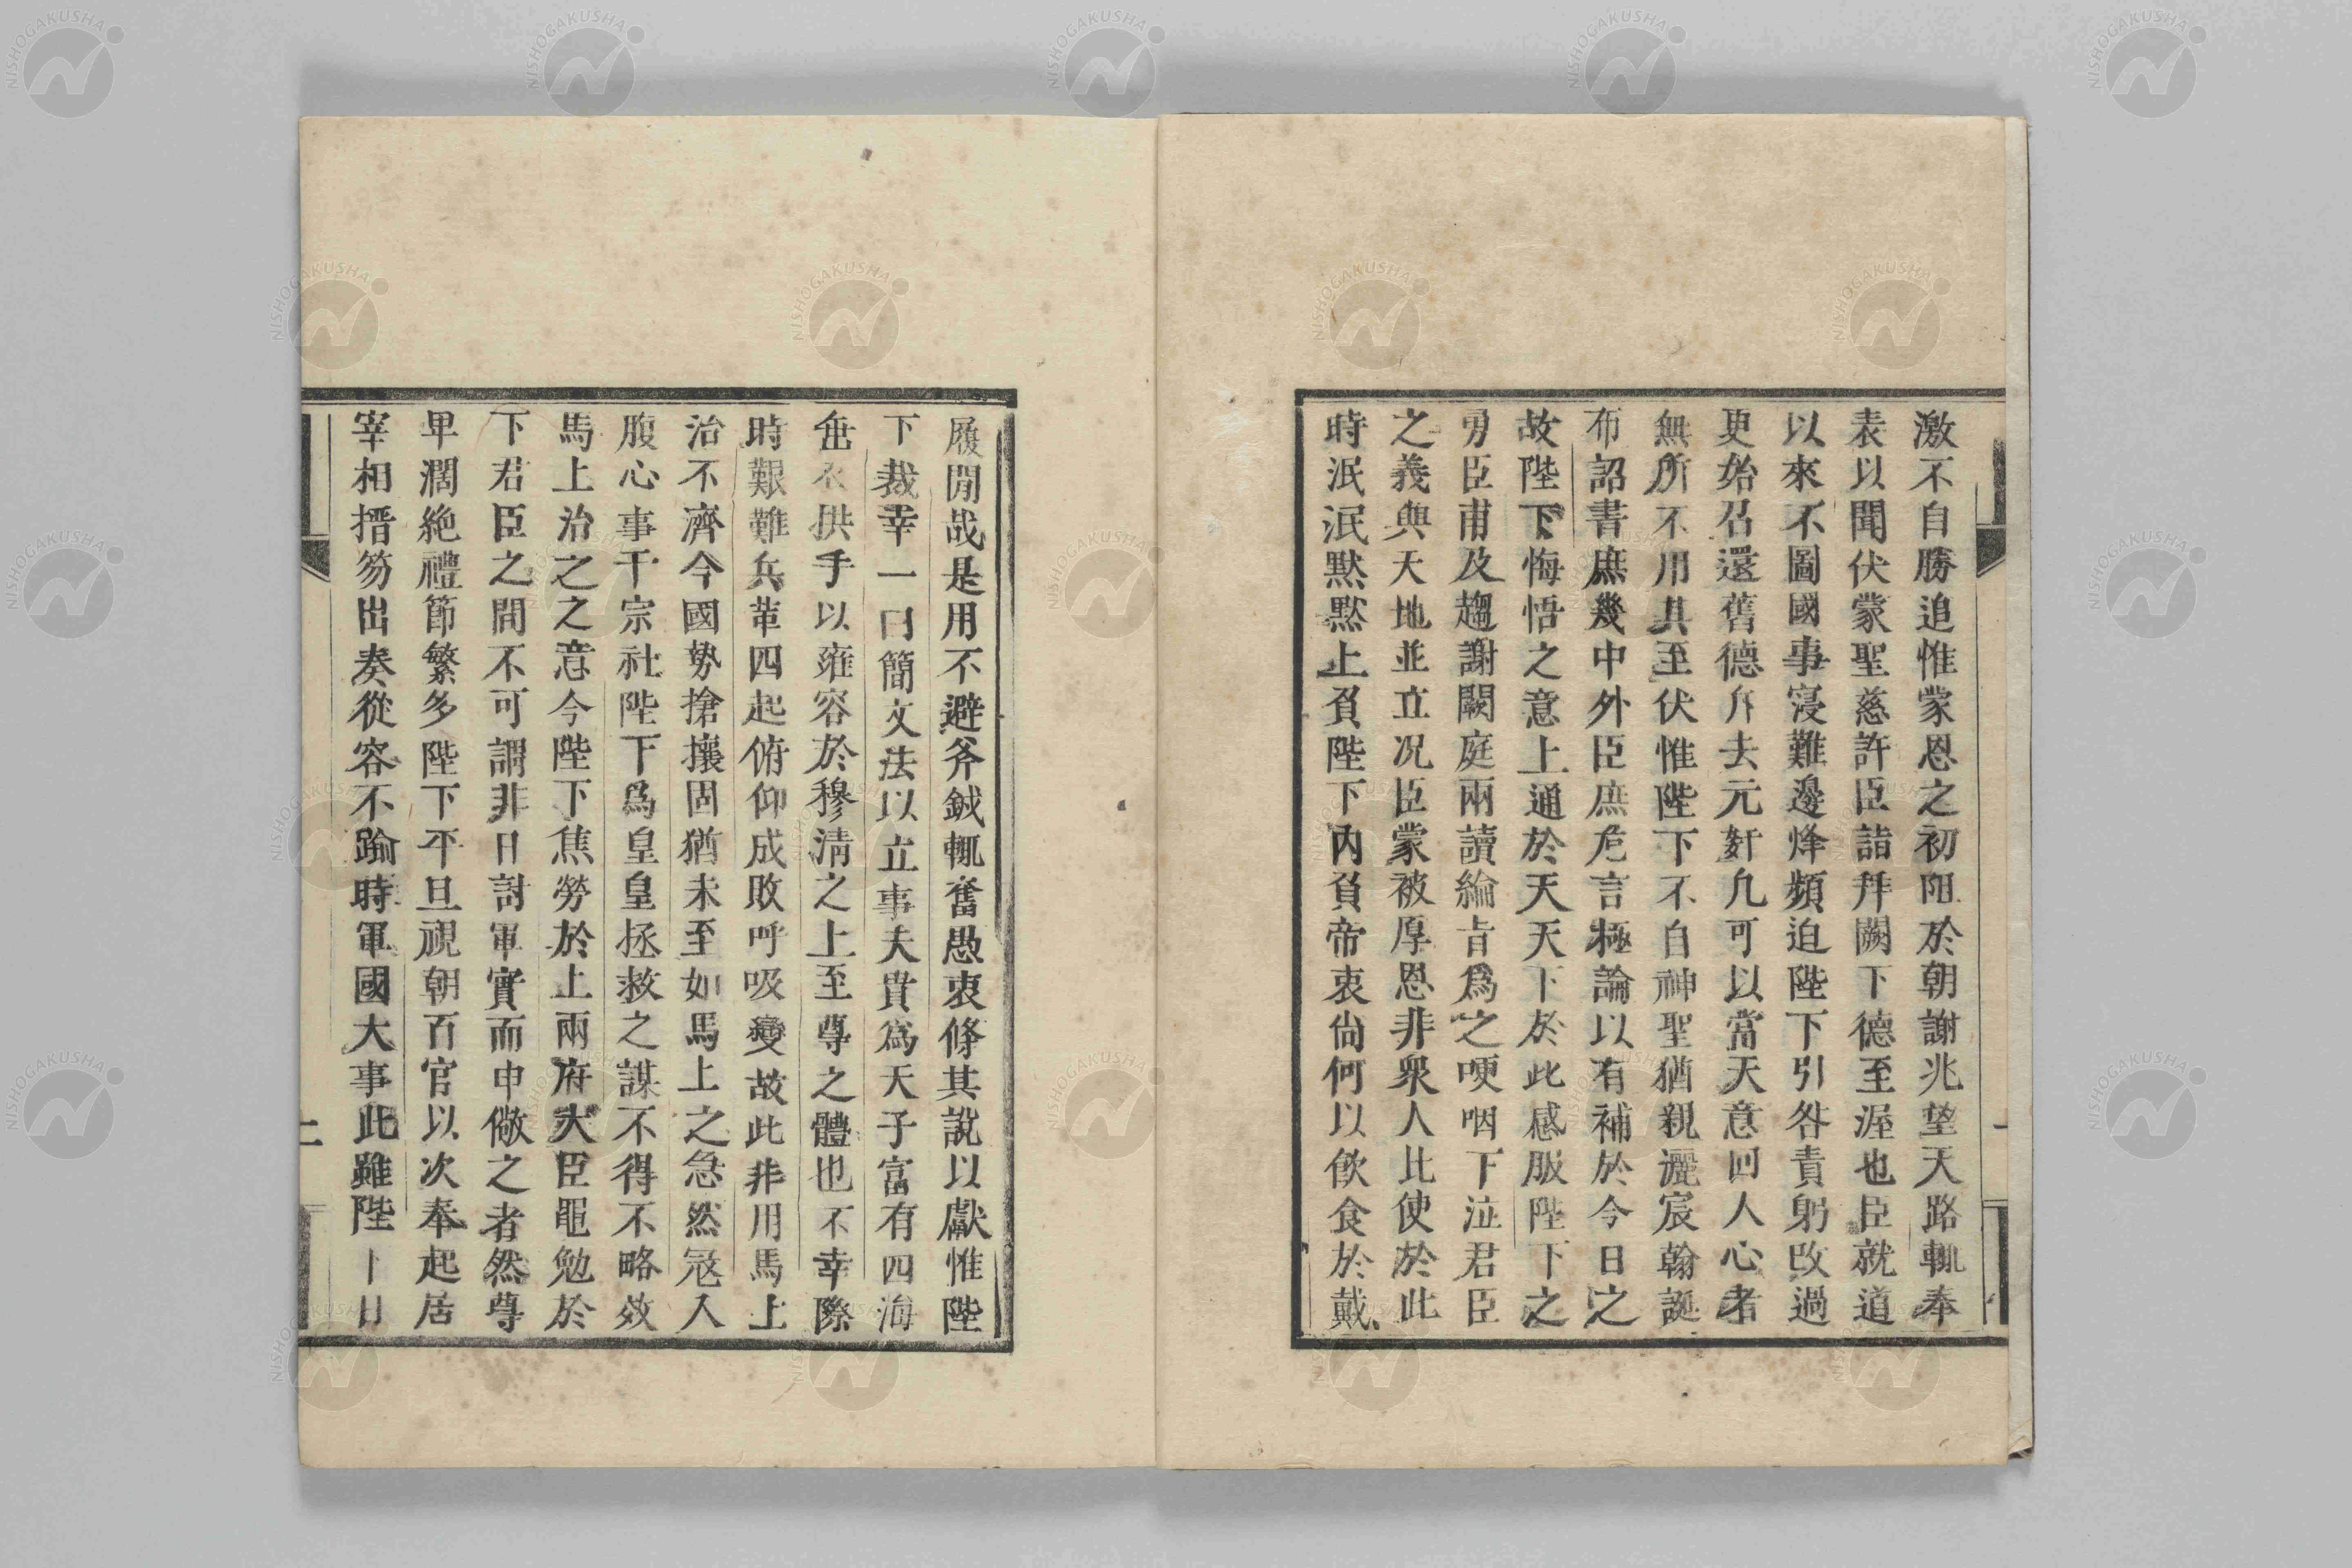 激不自勝追惟蒙恩之初陛於朝謝兆望天路輒奉
表以聞伏蒙聖慈許臣詣拜闕下德至渥也臣就道
以來不圖國事寖難邊烽頻迫陛下引咎責躬改過
更始召還舊德斥去元奸凢可以當天意回人心者
無所不用其至伏惟陛下不自神聖猶親灑宸翰誕
布詔書庶幾中外臣庶危言極論以有補於今日之
故陛下悔悟之意上通於天天下於此感服陛下之
勇臣甫及趨謝闕庭兩讀綸㫖爲之哽咽下泣君臣
之義與天地並立况臣蒙被厚恩非衆人比使於此
時泯泯默默上負陛下內負帝衷尙何以飮食於戴
履間哉是用不避斧鉞輒奮愚衷條其說以獻惟陛
下裁幸一曰簡文法以立事夫貴爲天子富有四海
垂衣拱手以雍容於穆淸之上至尊之體也不幸際
時艱難兵革四起俯仰成敗呼吸變故此非用馬上
治不濟今國勢搶攘固猶未至如馬上之急然冦入
腹心事干宗社陛下爲皇皇拯救之謀不得不略效
馬上治之之意今陛下焦勞於上兩府大臣黽勉於
下君臣之間不可謂非日討軍實而申儆之者然尊
卑濶絶禮節繁多陛下平旦視朝百官以次奉起居
宰相搢笏出奏從容不踰時軍國大事此雖陛下日
NISHOGAKUSHA